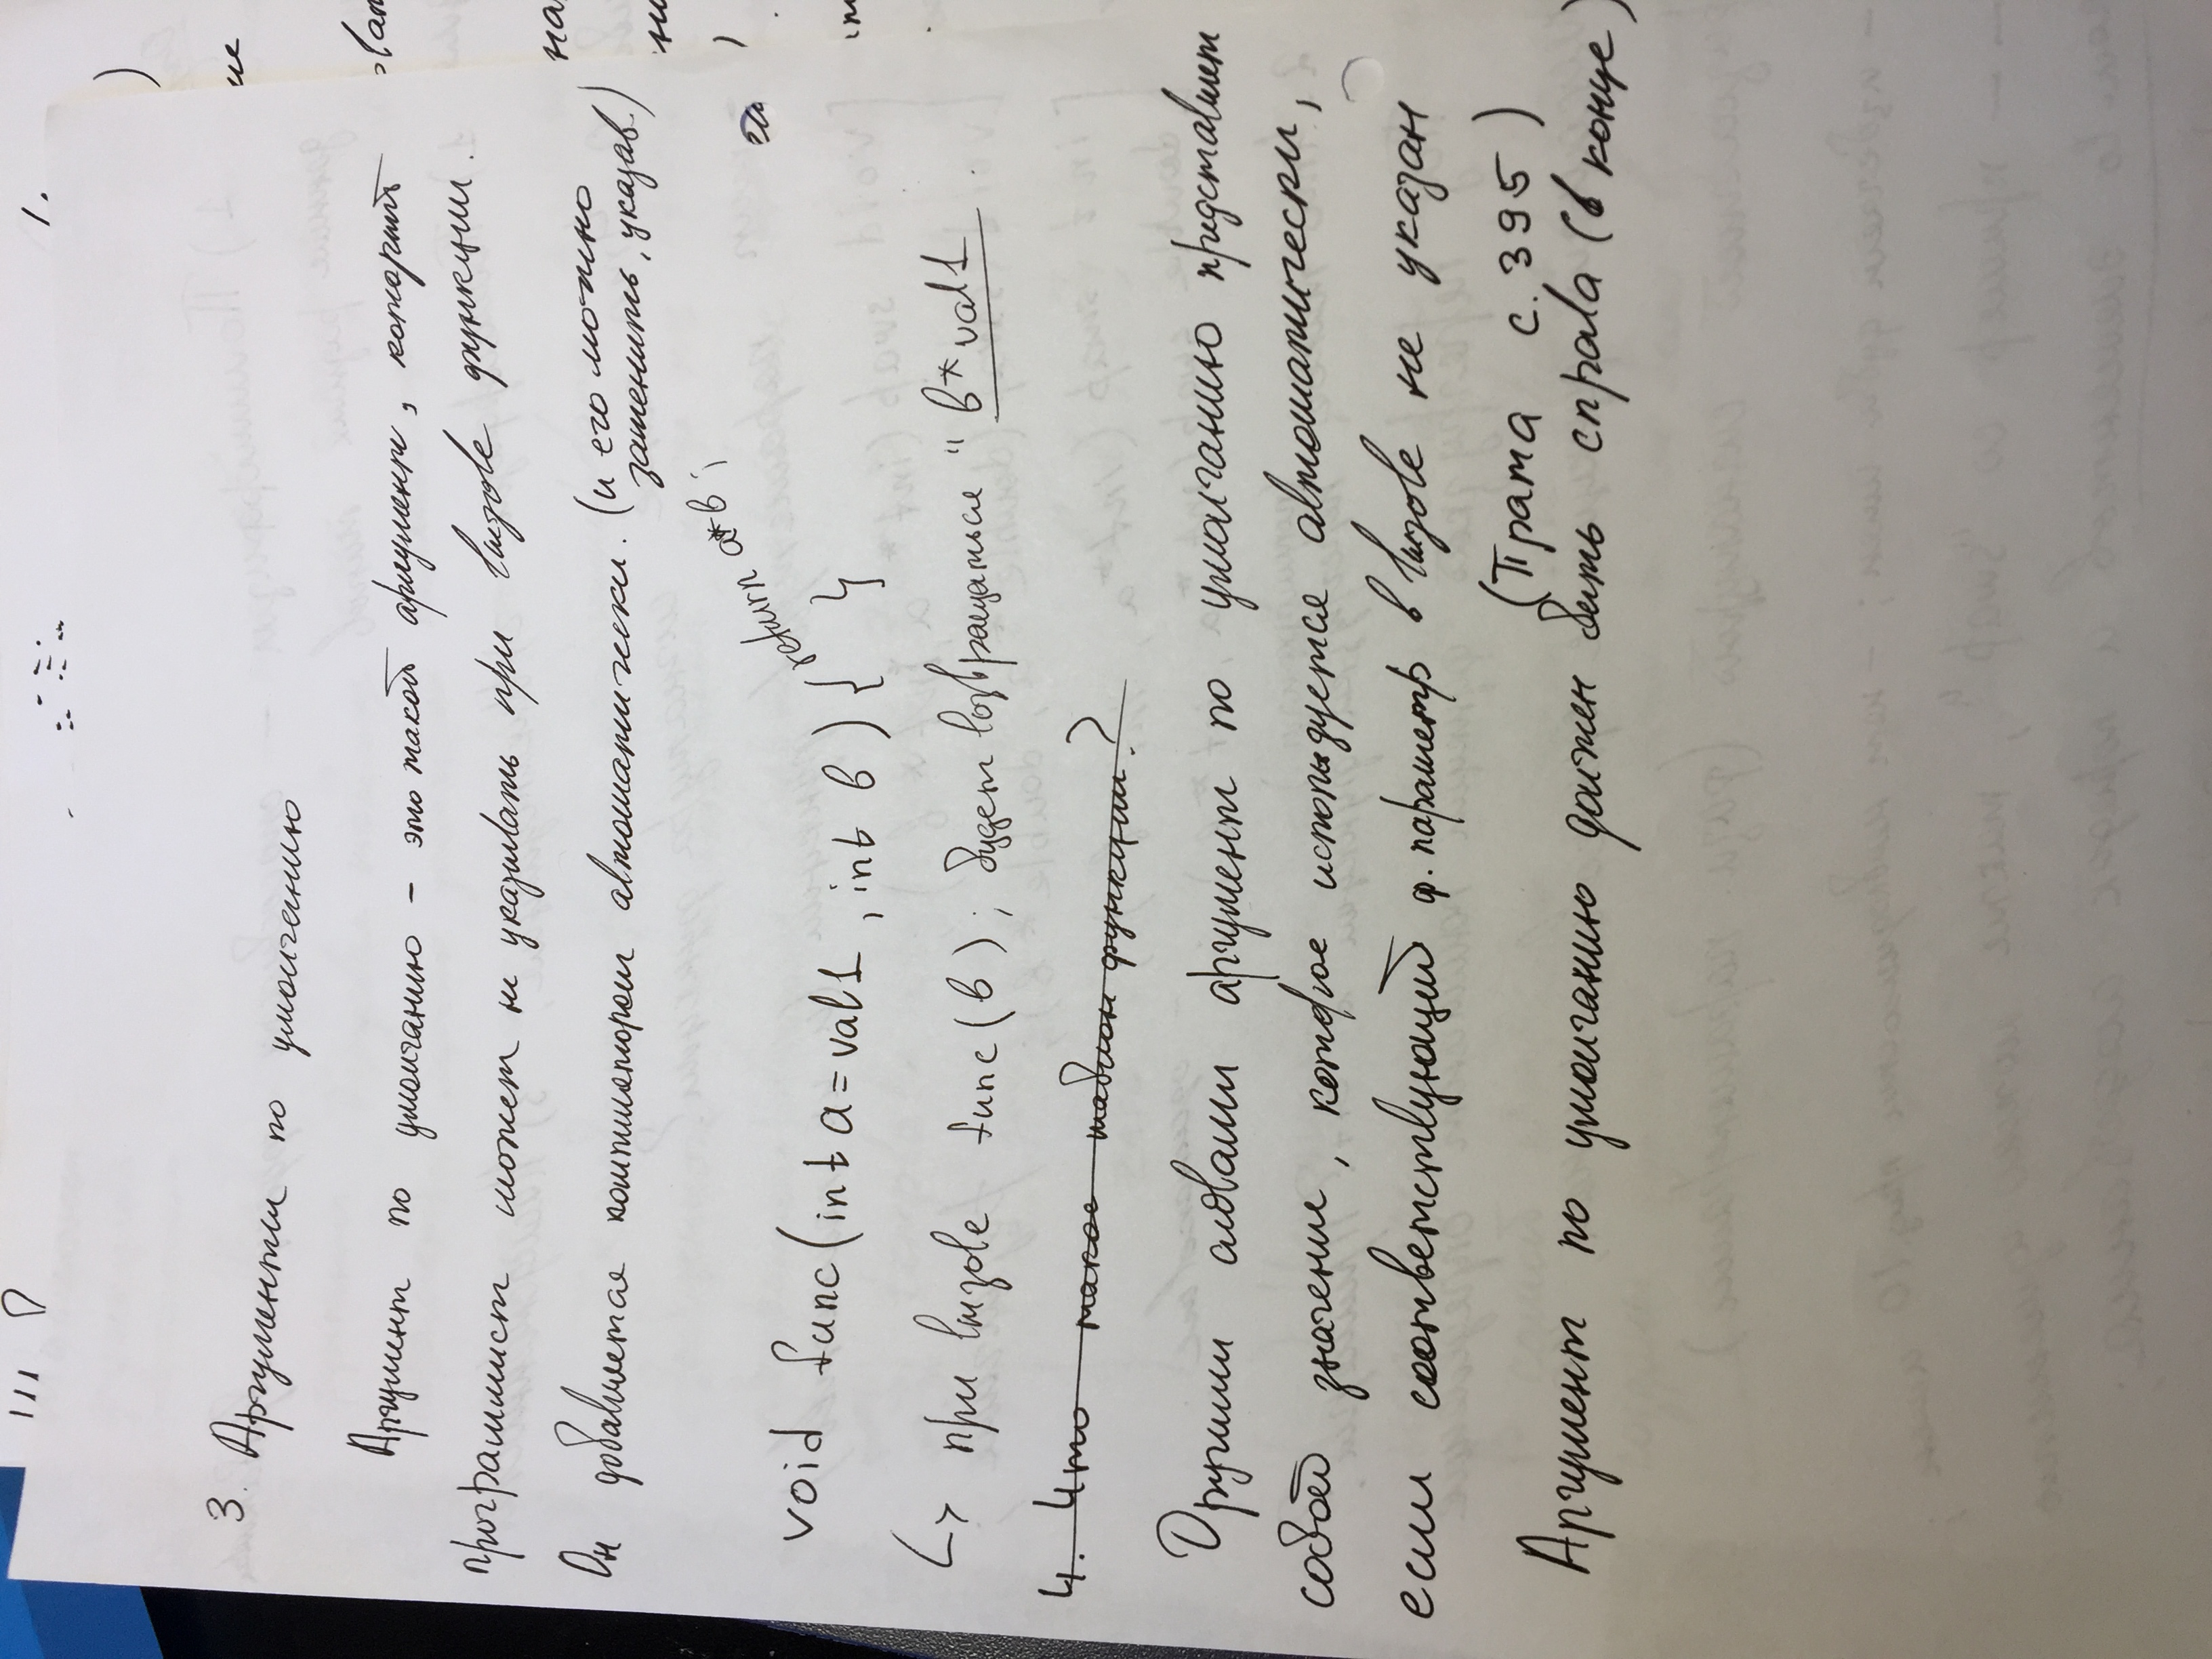 1.
3. Аргументы по умолчанию
Аргумент по умолчанию – это такой аргумент, который
программист может не указывать при вызове функции.
Он добавляется компилятором автоматически. (и его можно
заменить, указав.)
return a*b ;
void func(int a=val1 , int b) { }
↳ при вызове func(b) ; будет возвращаться " b*val1 .
4. Что такое шаблон функции?
Другими словами аргумент по умолчанию представляет
собой значение, которое используется автоматически,
если соответствующий ф. параметр в вызове не указан
(Прата с. 395)
Аргумент по умолчанию должен быть справа (в конце)